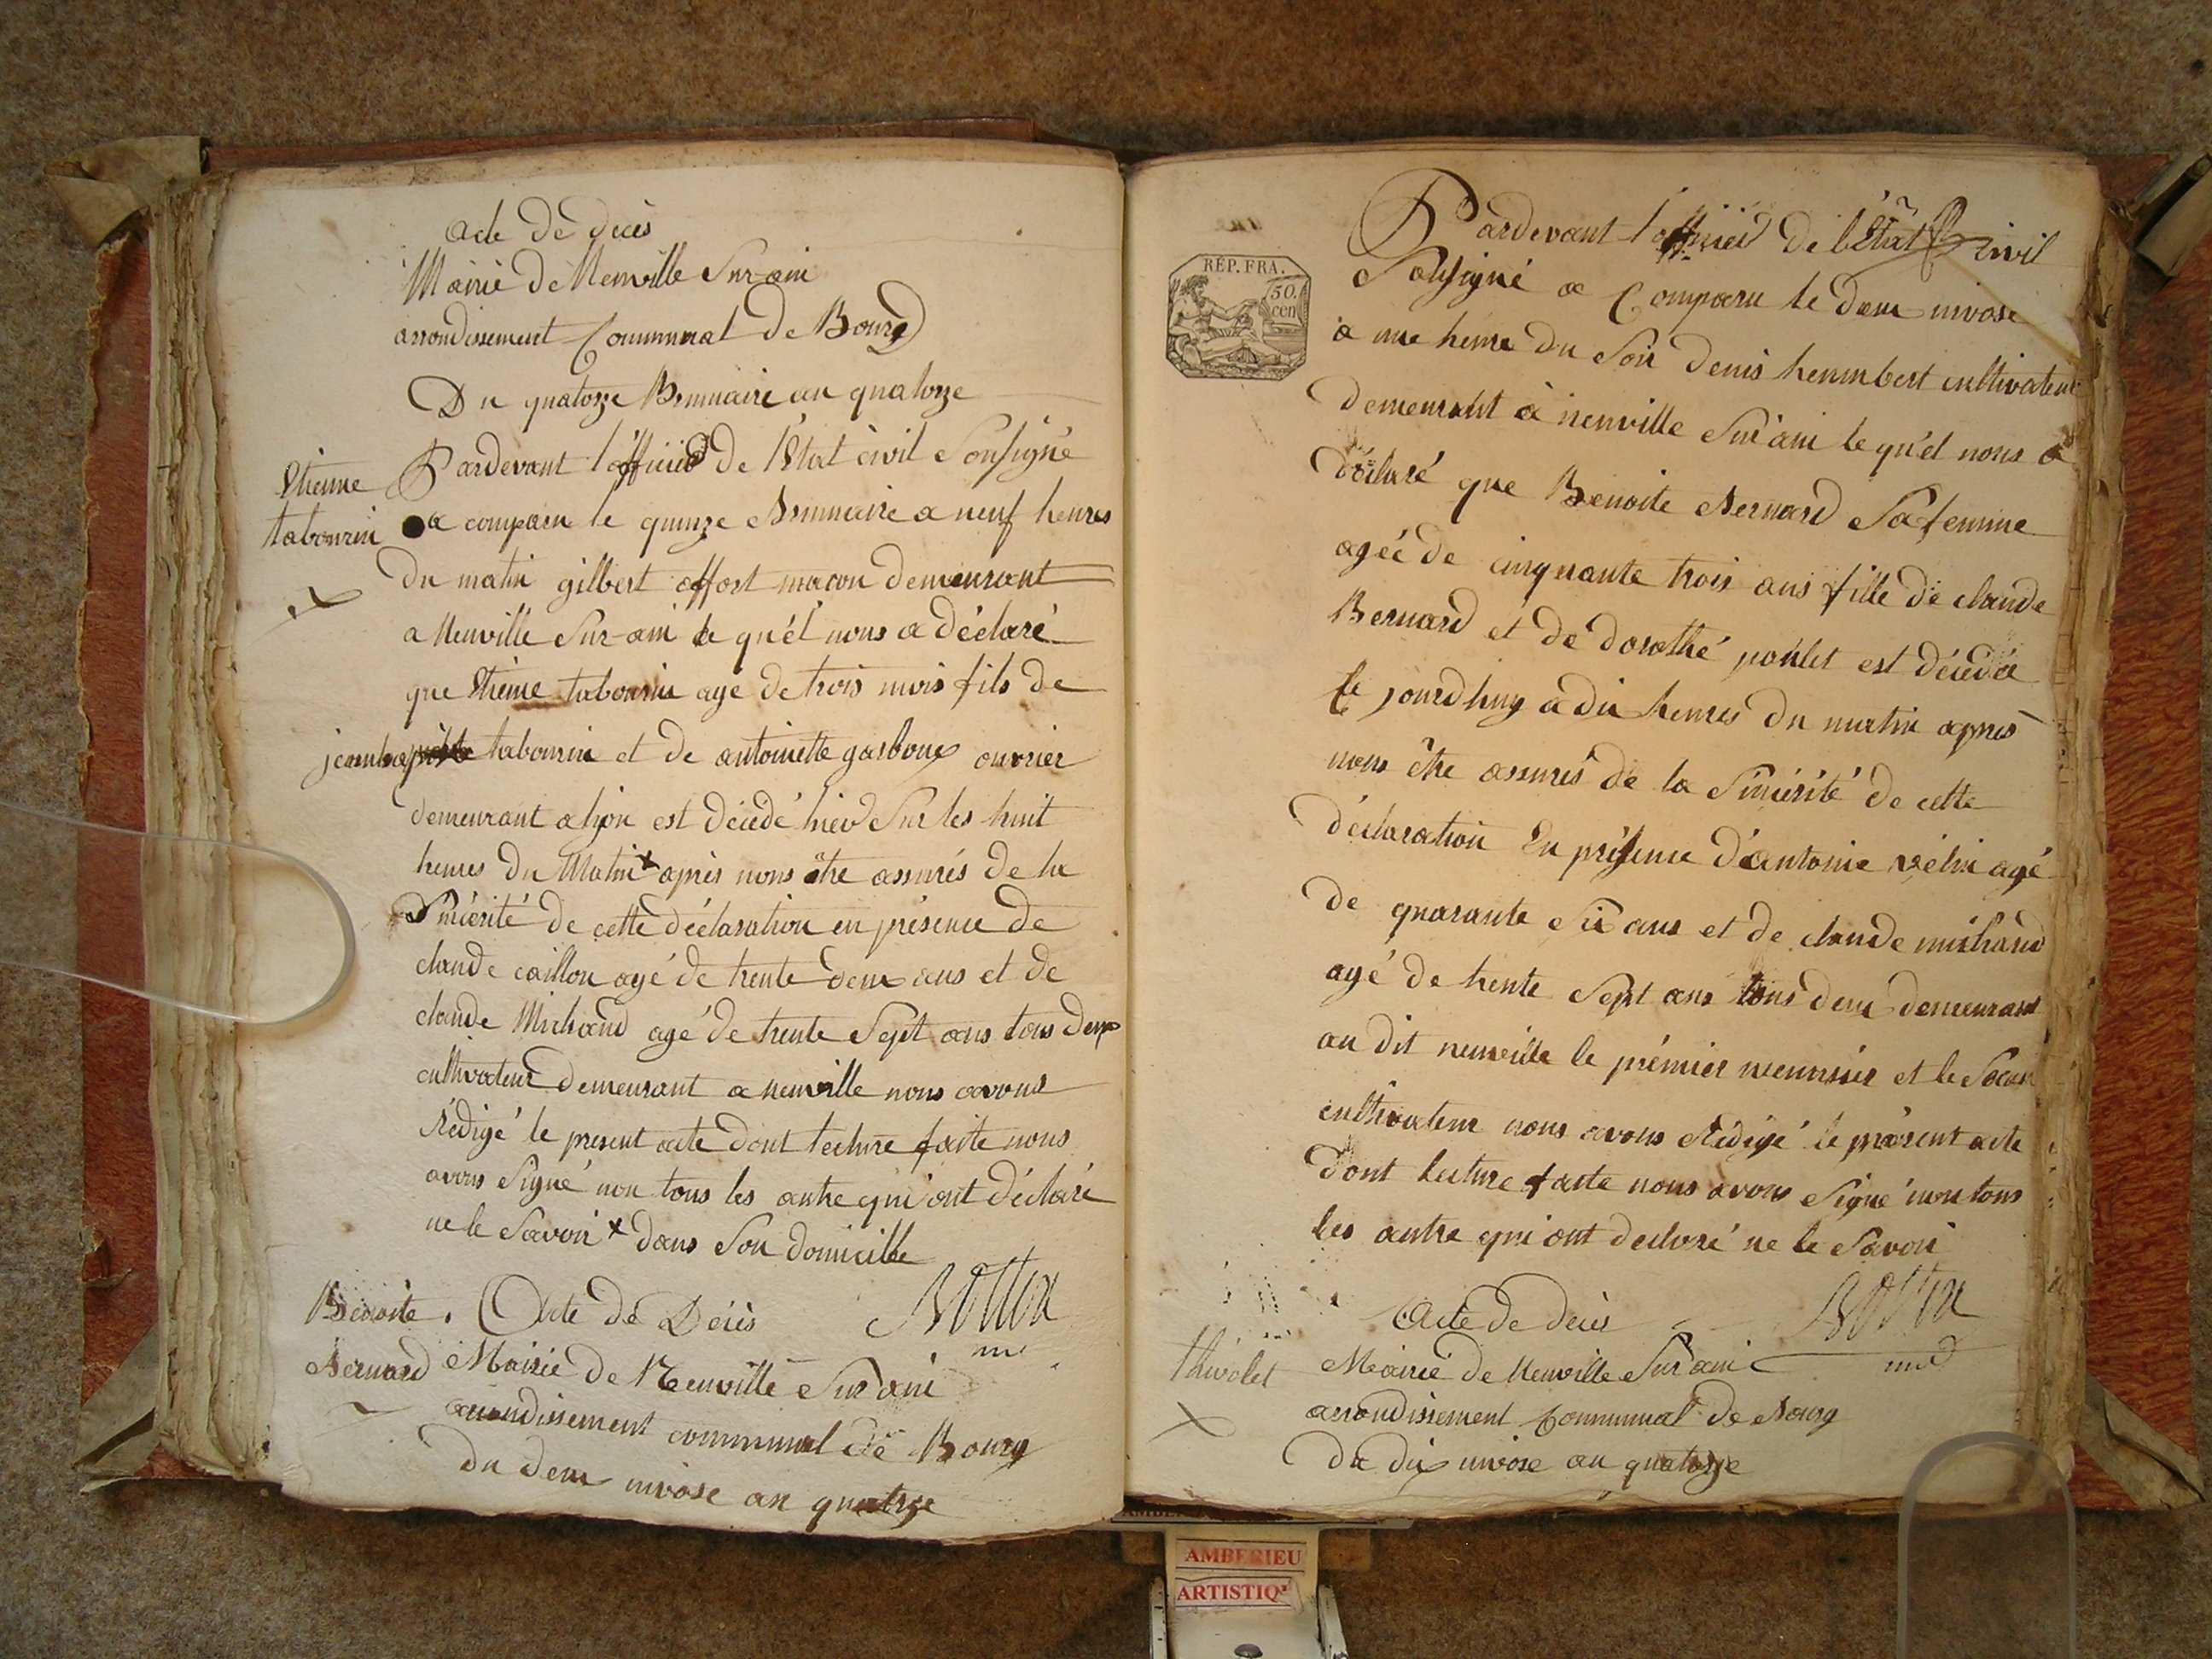 acte De décès
Mairie De Neuville Sur ain
arrondissement Communal De Bourg
Du quatorze Brumaire an quatorze
Etienne
tabourin
Pardevant l'officier De l'Etat civil Sousigné
a comparu le quinze Brumaire a neuf heures
Du matin gilbert offort macon demeurant
a Neuville Sur-ain le quél nous a déclaré
que Etiene tabourin age De trois mois fils De
jeanbaptiste tabourin et de antoinette garboux ouvrier
Demeurant a lyon est décédé hier Sur les huit
heures Du Matin x après nous être assurés De la
Sincérité De cette déclaration en présence De
claude caillon agé De trente Deux ans et de
claude Michaud agé De trente Sept ans tous Deux
cultivateur Demeurant a neuville nous avons
rédigé le present acte Dont lecture faite nous
avons Signé non tous les autre qui ont Déclaré
ne le Savoir x Dans Son Domicille
Benoite
Bernard
Acte De Décès
Mairie De Neuville Sur ain
arrondissement communal De Bourg
Du deux nivose an quatorze
RÉP. FRA.
50.
cen
Pardevant l'officier De l'Etat Civil
Sousigné a Comparu le deux nivose
a une heure Du Soir Denis humbert cultivateur
Demeurant à neuville Sur ain le qu'el nous a
Déclaré que Benoite Bernard Sa femme
agée De cinquante trois ans fille De claude
Bernard et De dorothé poulet est décédée
ce jourdhuy a dix heures Du matin après
nous être assurés De la Sincérité De cette
Déclaration En présence D'antoine agé
De quarante Six ans et De claude michaud
agé De trente Sept ans tous deux Demeurant
au Dit neuville le prémier meunier et le Secon
cultivateur nous avons Rédigé le présent acte
Dont lecture faite nous avons Signé non tous
les autre qui ont declaré ne le Savoir
Acte De décès
thivolet
Mairie De Neuville Sur ain
arrondissement Communal De Bourg
Du dix nivose an quatorze
AMBERIEU
ARTISTIQ